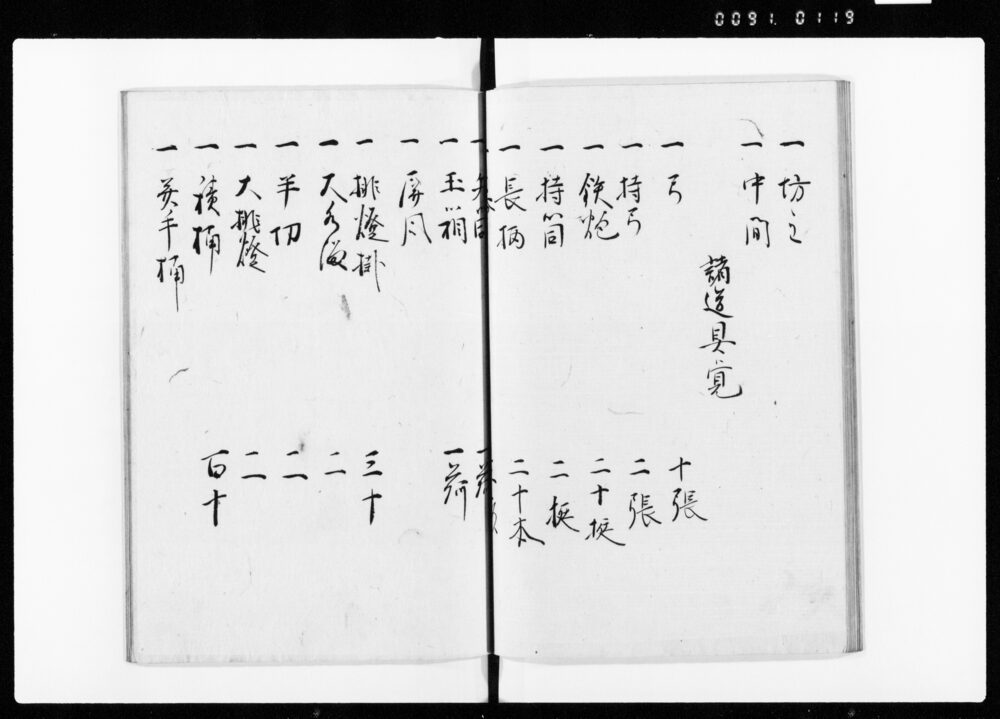 0091.0119
一 坊主
一 中間
諸道具覚
一 弓 十張
一 持弓 二張
一 鉄炮 二十挺
一 持筒 二挺
一 長柄 二十本
一 一荷
一 玉箱 一荷
一 屏風
一 挑燈掛 三十
一 大 二
一 半切 二
一 大挑燈 二
一 積桶 百十
一 手桶